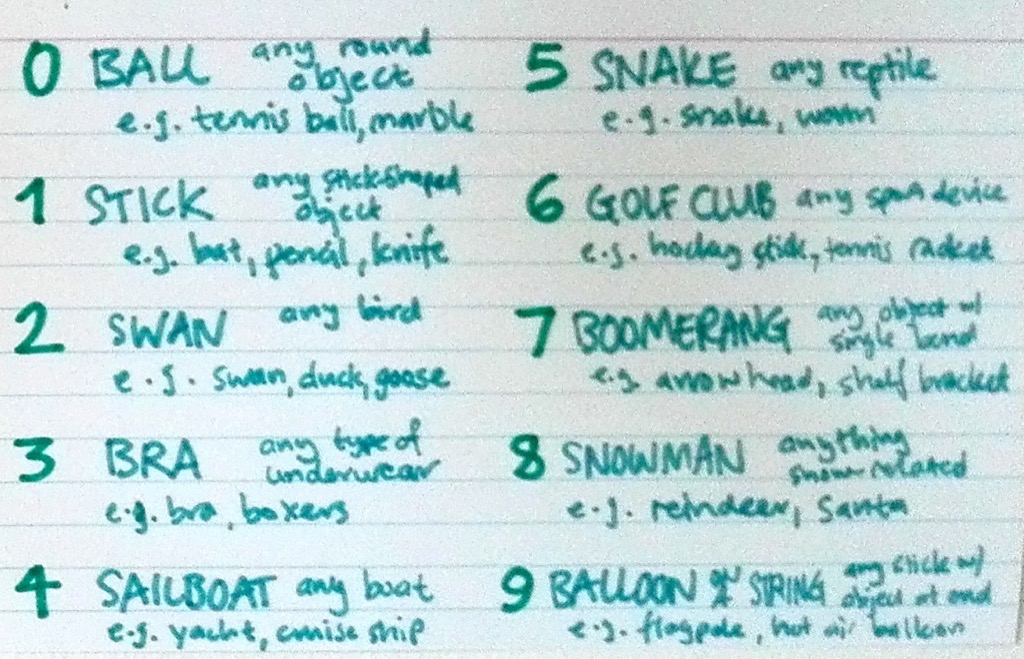 0 BALL any round
object
e.g. tennis ball, marble
1 STICK any stick-shaped
object
e.g. bat, pencil, knife
2 SWAN any bird
e.g. swan, duck, goose
3 BRA any type of
underwear
e.g. bra, boxers
4 SAILBOAT any boat
e.g. yacht, cruise ship
5 SNAKE any reptile
e.g. snake, worm
6 GOLF CLUB any sport device
e.g. hockey stick, tennis racket
7 BOOMERANG any object w/
single bend
e.g. arrowhead, shelf bracket
8 SNOWMAN anything
snow-related
e.g. reindeer, Santa
9 BALLOON STRING any stick w/
object at end
e.g. flagpole, hot air balloon